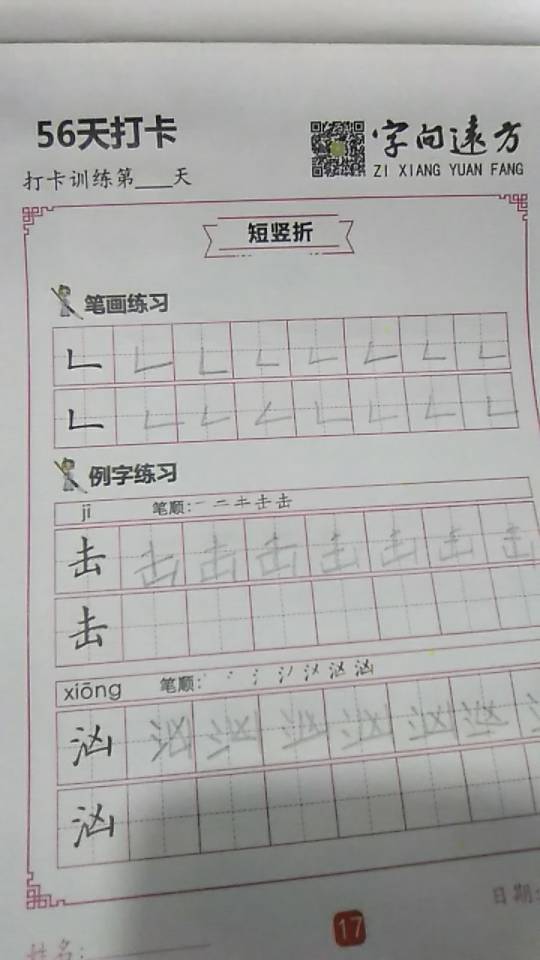 56天打卡
字向远方
打卡训练第___天
ZI XIANG YUAN FANG
短竖折
笔画练习
例字练习
jī 笔顺:一 二 キ 击 击
击 击 击 击 击 击 击 击
击
xiōng 笔顺:
汹 汹 汹 汹 汹 汹 汹
汹
日期:
17
姓名: